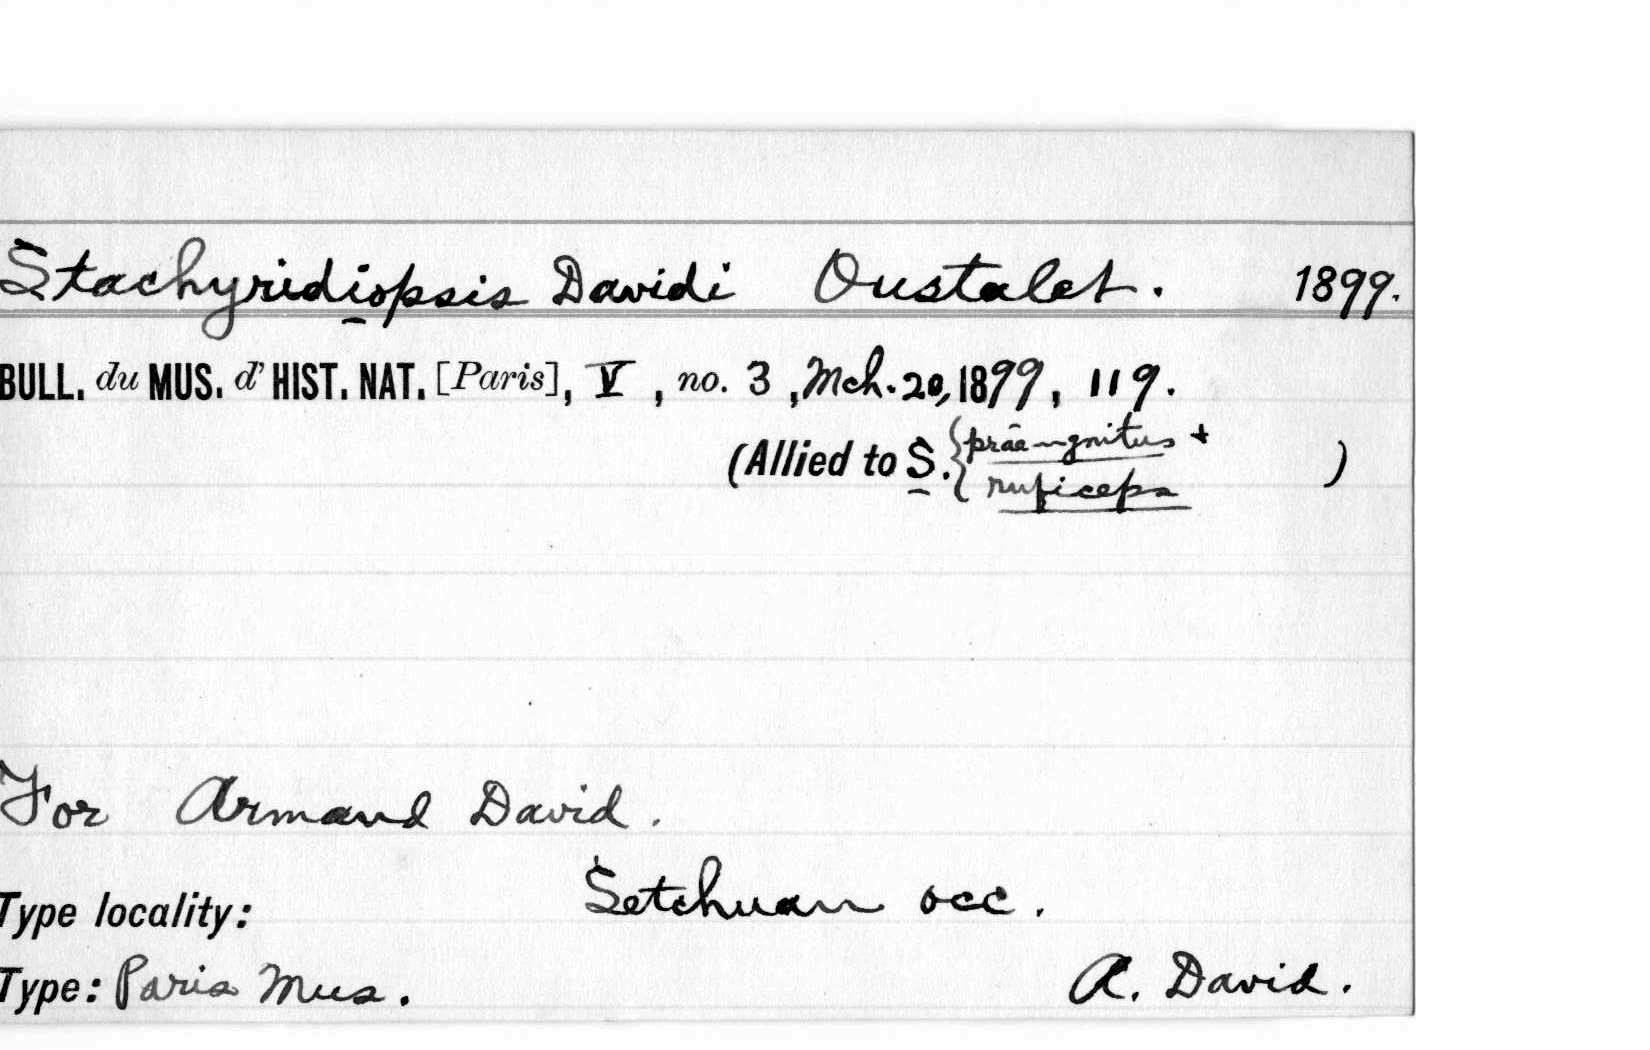 Stachyridiopsis Davidi Oustalet. 1899.
BULL. du MUS. d' HIST. NAT. [Paris], V, no. 3, Mch. 20, 1899, 119.
(Allied to S. { +
ruficeps )
For Armand David.
Type locality: Setchuan occ.
Type: Paris Mus. A. David.